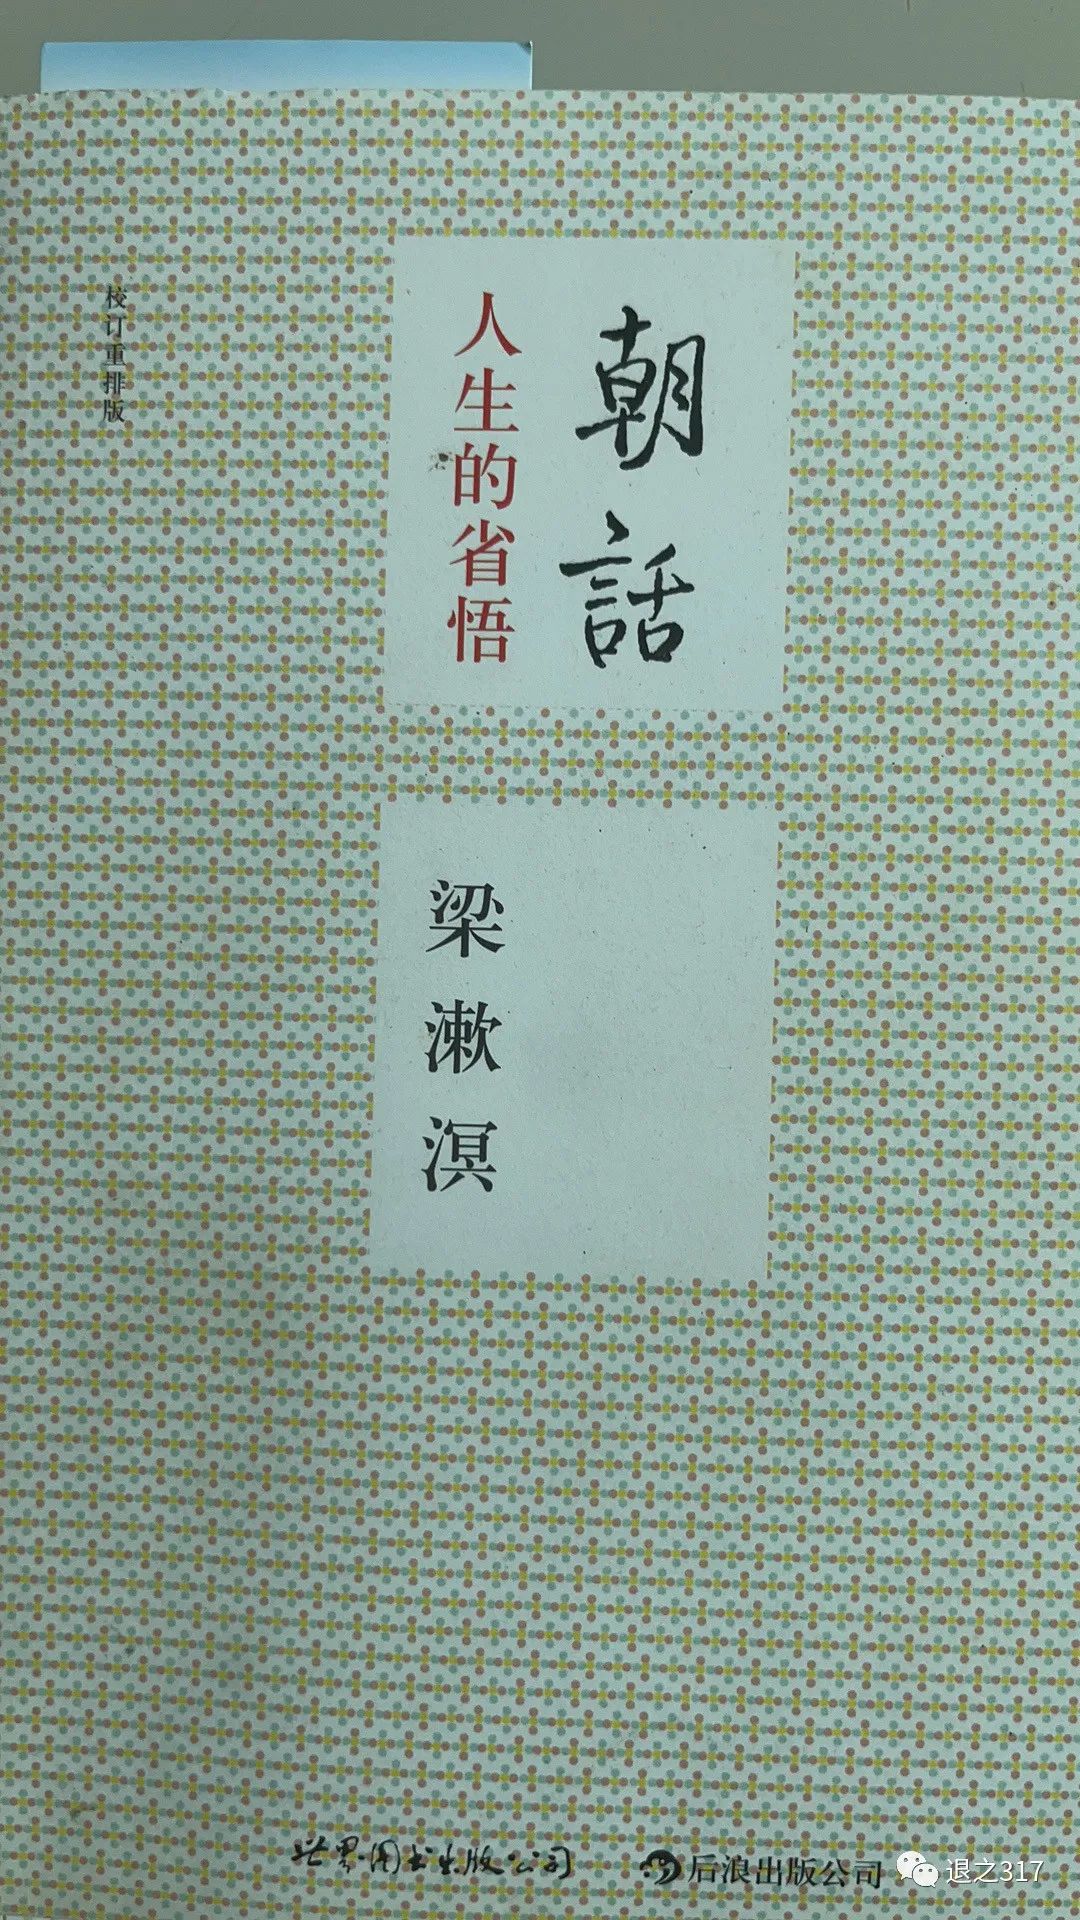 朝話
人生的省悟
校订重排版
梁漱溟
世界图书出版公司
后浪出版公司
退之317